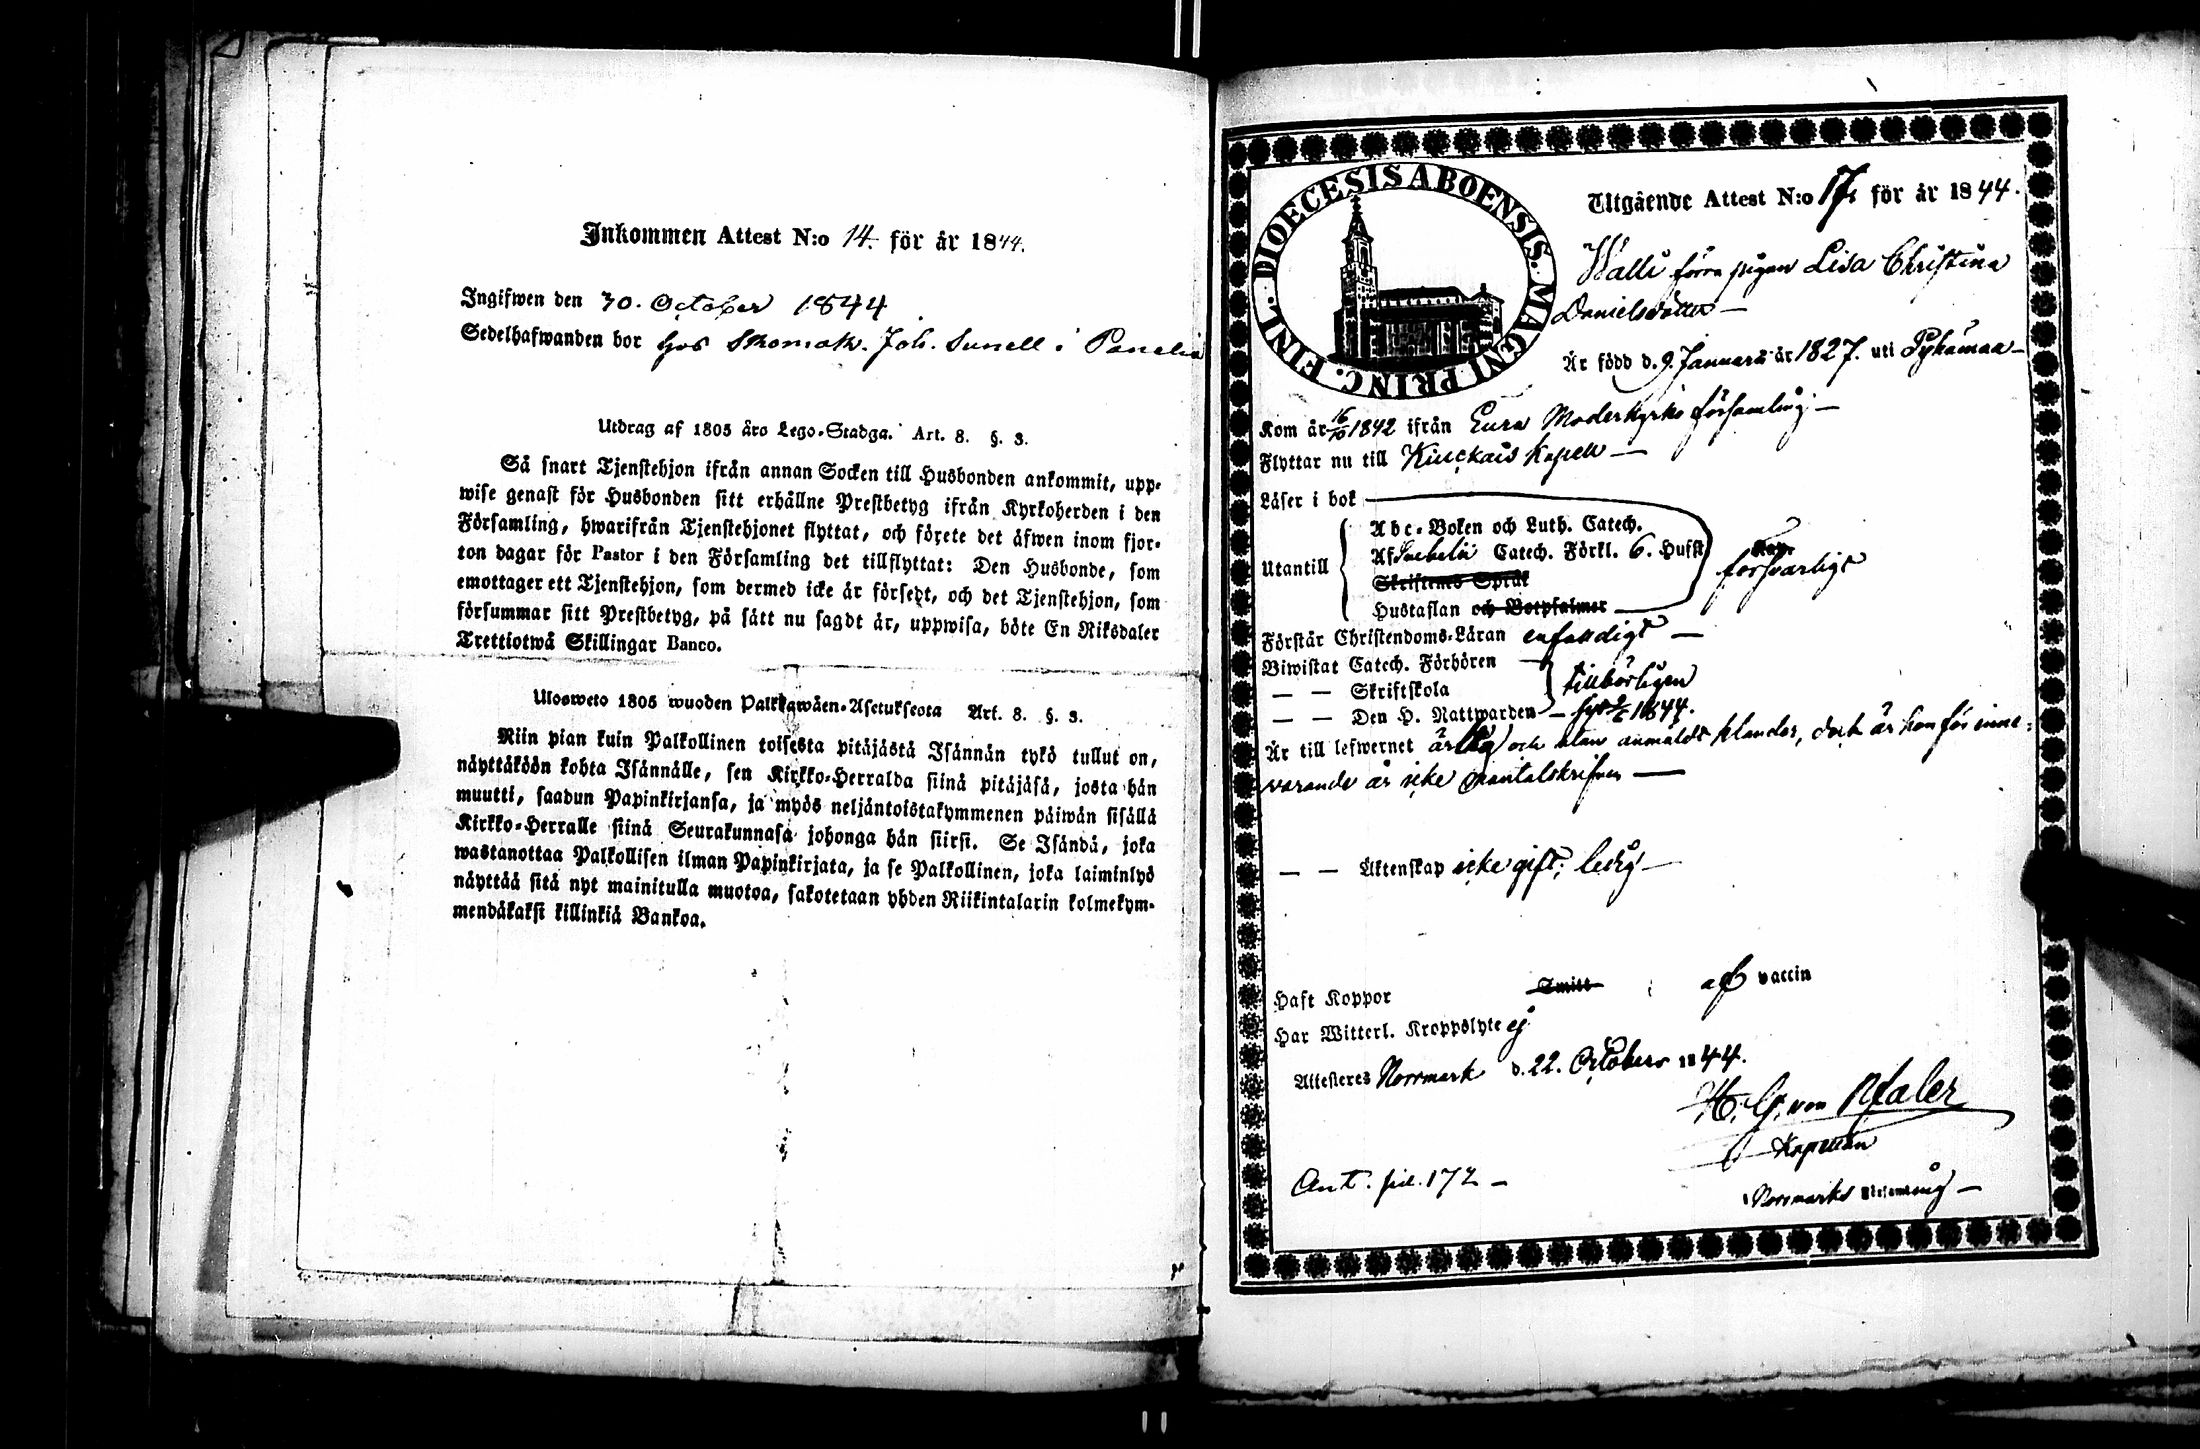 Inkommen Attest N:o 14. för år 1844.
Ingifwen den 30. October 1844
Sedelhafwanden bor hos Skomak. Joh. Sunell i Panelia
Utdrag af 1805 års Lego-Stadga. Art. 8. §. 3.
Så snart Tjenstehjon ifrån annan Socken till Husbonden ankommit, upp-
wise genast för Husbonden sitt erhållne Prestbetyg ifrån Kyrkoherden i den
Församling, hwarifrån Tjenstehjonet flyttat, och förete det äfwen inom fjor-
ton dagar för Pastor i den Församling det tillflyttat: Den Husbonde, som
emottager ett Tjenstehjon, som dermed icke är försedt, och det Tjenstehjon, som
försummar sitt Prestbetyg, på sätt nu sagdt är, uppwisa, böte En Riksdaler
Trettiotwå Skillingar Banco.
Ulosweto 1805 wuoden Palkkawäen-Asetuksesta Art. 8. §. 3.
Niin pian kuin Palkollinen toisesta pitäjästä Isännän tykö tullut on,
näyttäköön kohta Isännälle, sen Kirkko-Herralda siinä pitäjäsä, josta hän
muutti, saadun Papinkirjansa, ja myös neljäntoistakymmenen päiwän sisällä
Kirkko-Herralle siinä Seurakunnasa johonga hän siirsi. Se Isändä, joka
wastanottaa Palkollisen ilman Papinkirjata, ja se Palkollinen, joka laiminlyö
näyttää sitä nyt mainitulla muotoa, sakotetaan yhden Riikintalarin kolmekym-
mendäkaksi killinkiä Bankoa.
DIOECESIS ABOENSIS. MAGNI PRINC. FINL.
Utgående Attest N:o 17. för år 1844.
förra pigan Lisa Christina
Danielsdotter —
Är född d. 9. Januarii år 1827. uti Pyhämaa —
Kom år 16/10 1842 ifrån Eura Moderkyrko församling —
Flyttar nu till Kiuckais Kapell —
Läser i bok
Utantill
Abc-Boken och Luth. Catech.
Af Svebelii Catech. Förkl. 6. Hufst.
Skriftenes Språk
Hustaflan och Botpsalmer
försvarligt
Förstår Christendoms-Läran enfaldigt —
Biwistat Catech. Förhören
— — Skriftskola
tillbörligen
— — Den H. Nattwarden — 1844.
Är till lefwernet ärlig och utan anmäldt klander, dock är hon för inne-
varande år icke mantalskrifven —
— — Äktenskap icke gift; ledig —
Haft Koppor Smitt af vaccin
Har Witterl. Kroppslyte ej
Attesteres Norrmark d. 22. Octobers 1844.
H. G. von Pfaler
Kapellan
Norrmarks Församling —
Ant. pid. 172 —